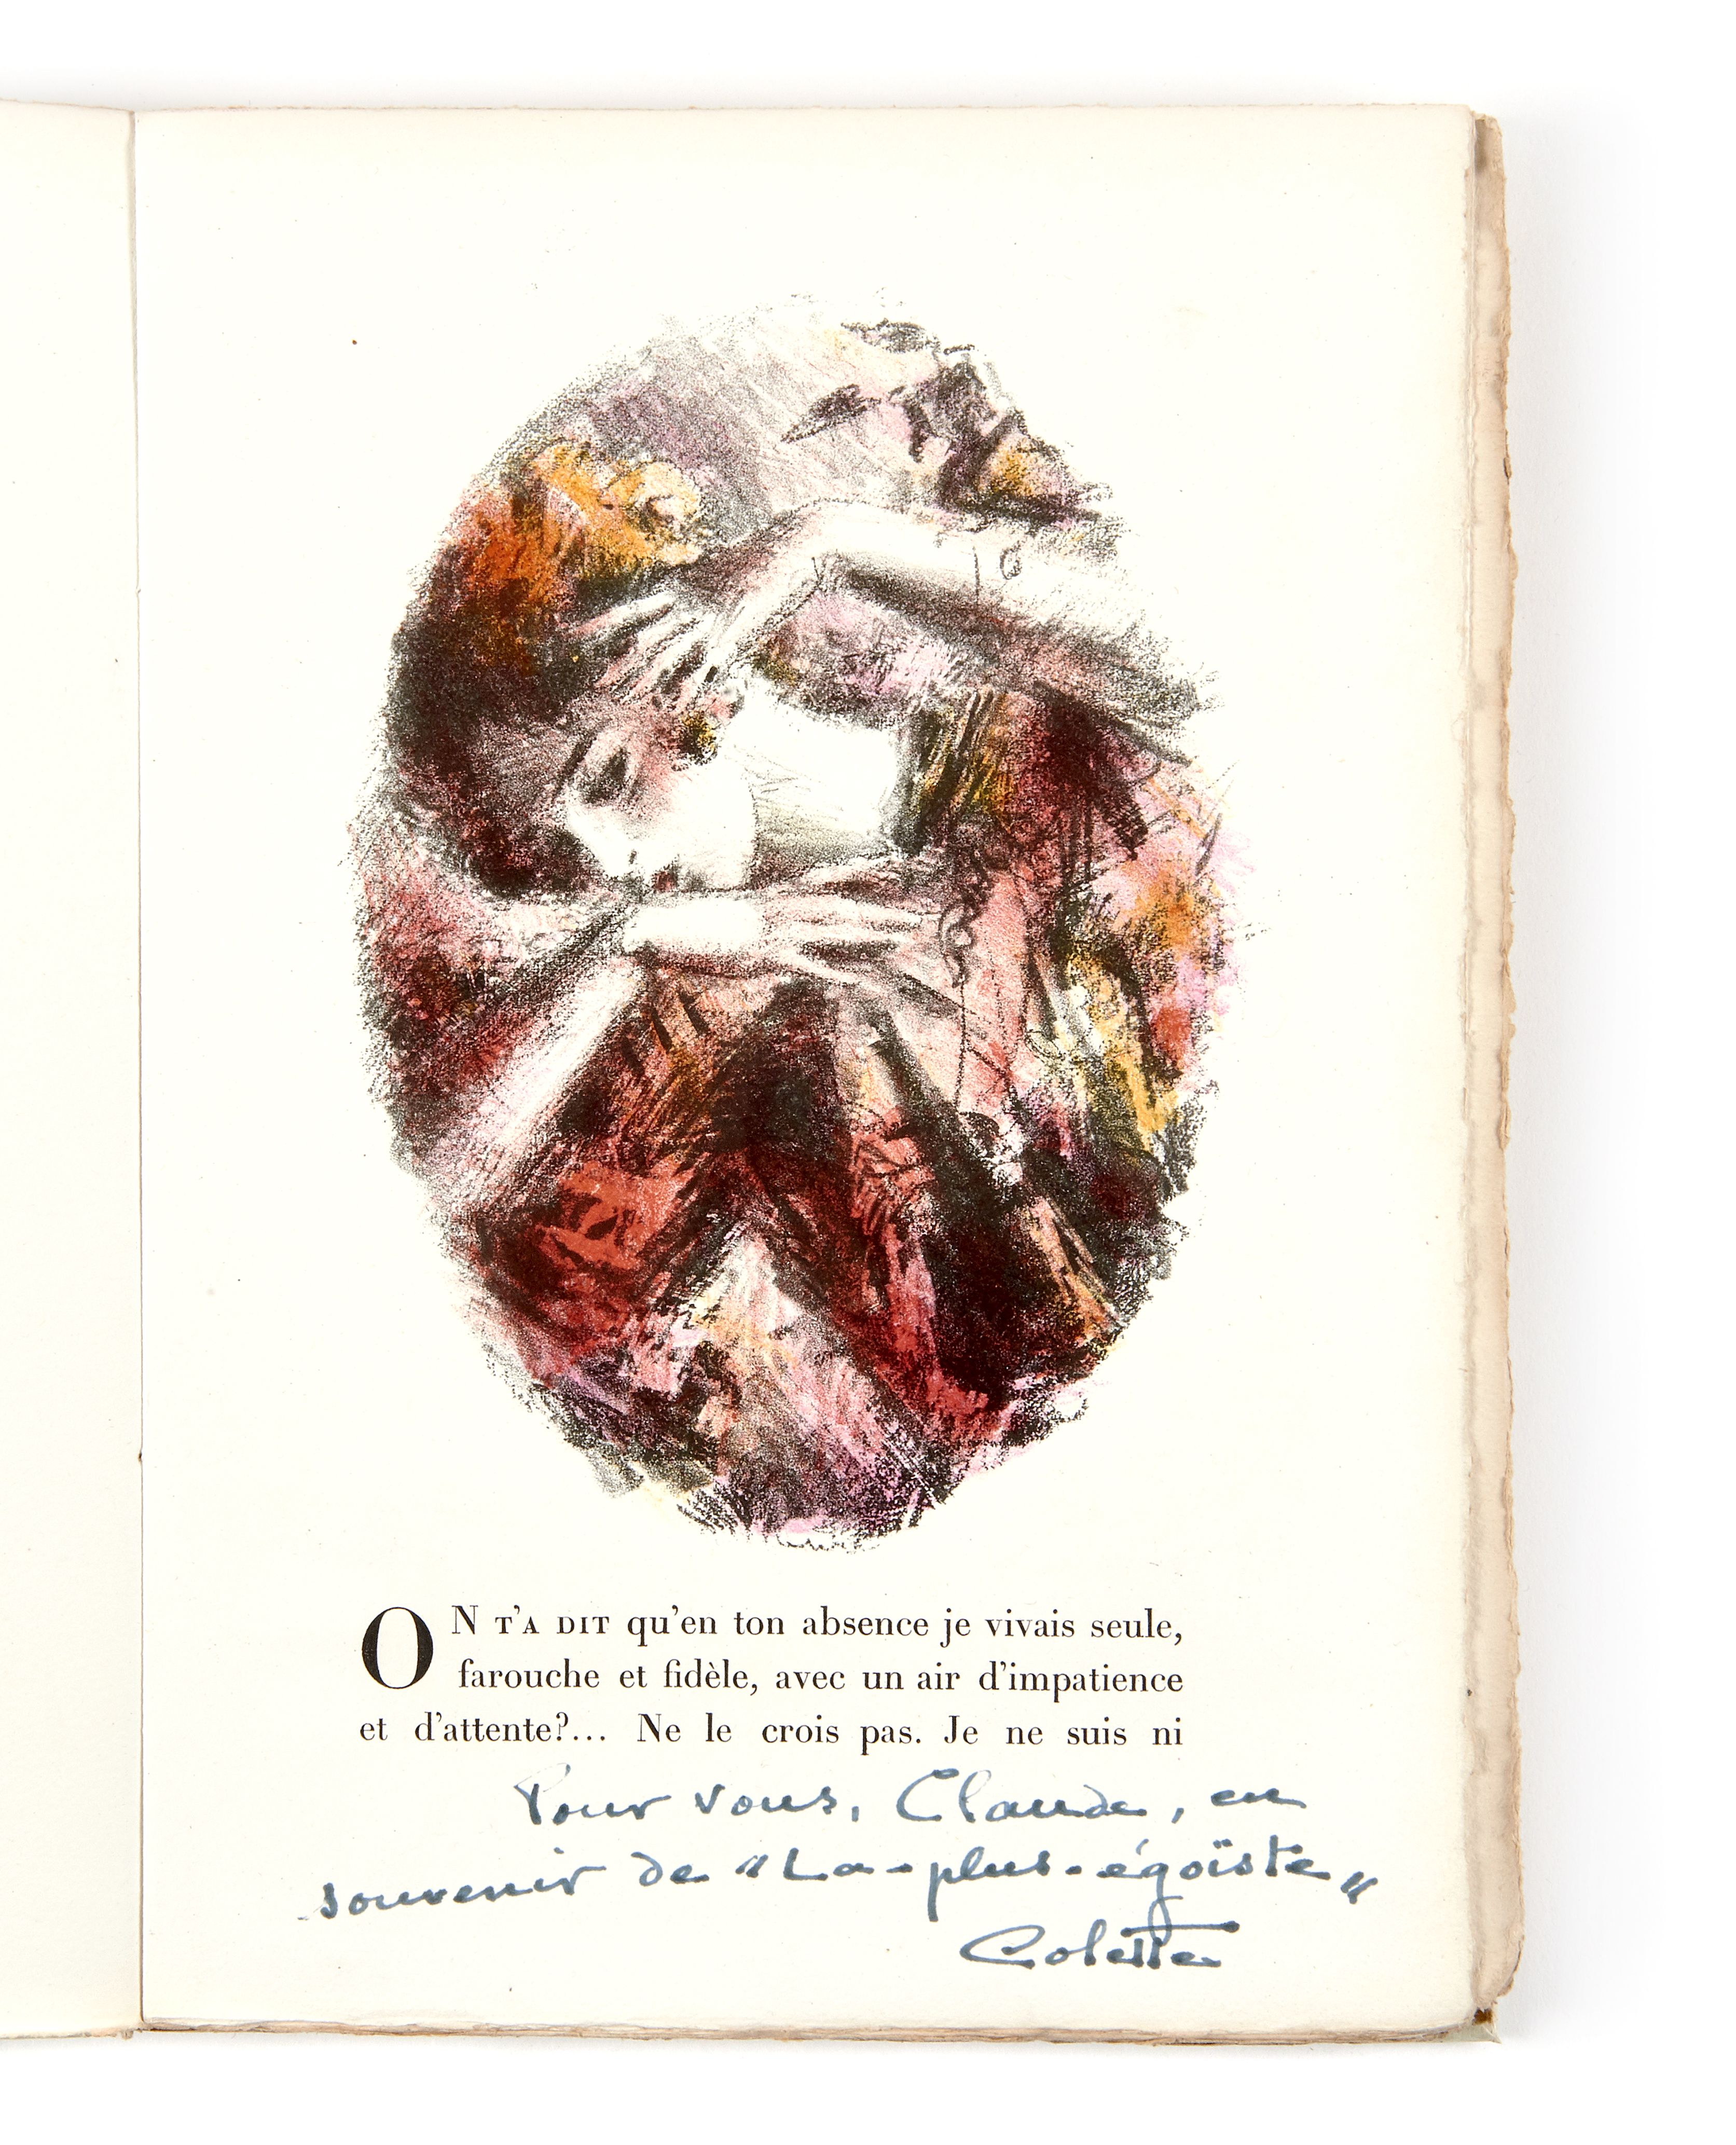 ON T'A DIT qu'en ton absence je vivais seule,
farouche et fidèle, avec un air d'impatience
et d'attente?... Ne le crois pas. Je ne suis ni
Pour vous, Claude, en
souvenir de "La-plus-égoïste"
Colette